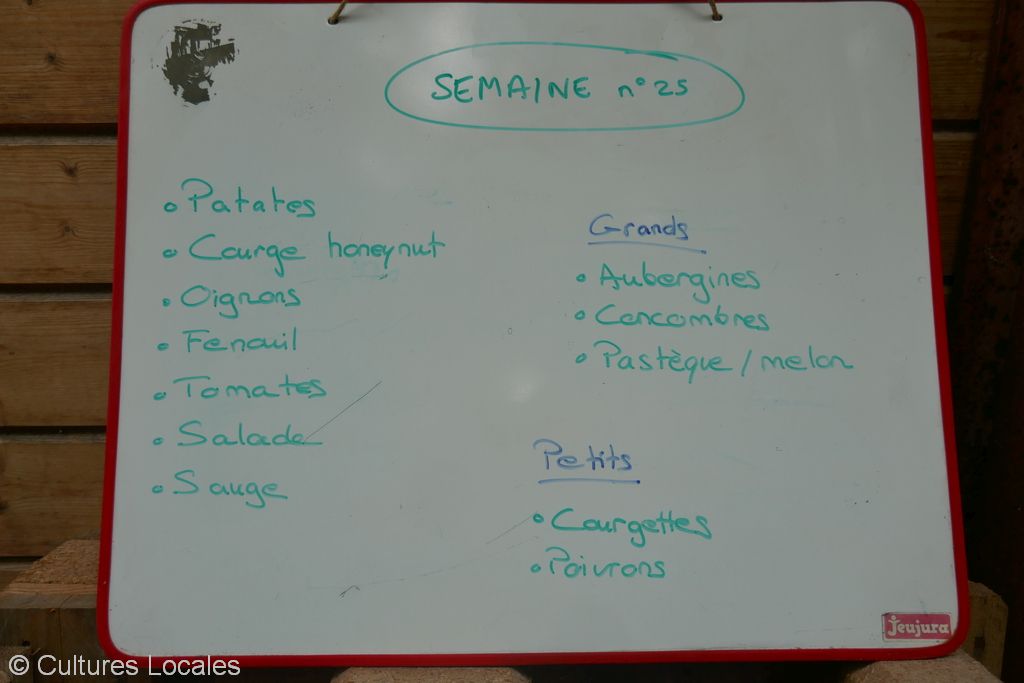 SEMAINE n° 25
• Patates
• Courge honeynut
• Oignons
• Fenouil
• Tomates
• Salade
• Sauge
Grands
• Aubergines
• Concombres
• Pastèque / melon
Petits
• Courgettes
• Poivrons
Jeujura
© Cultures Locales